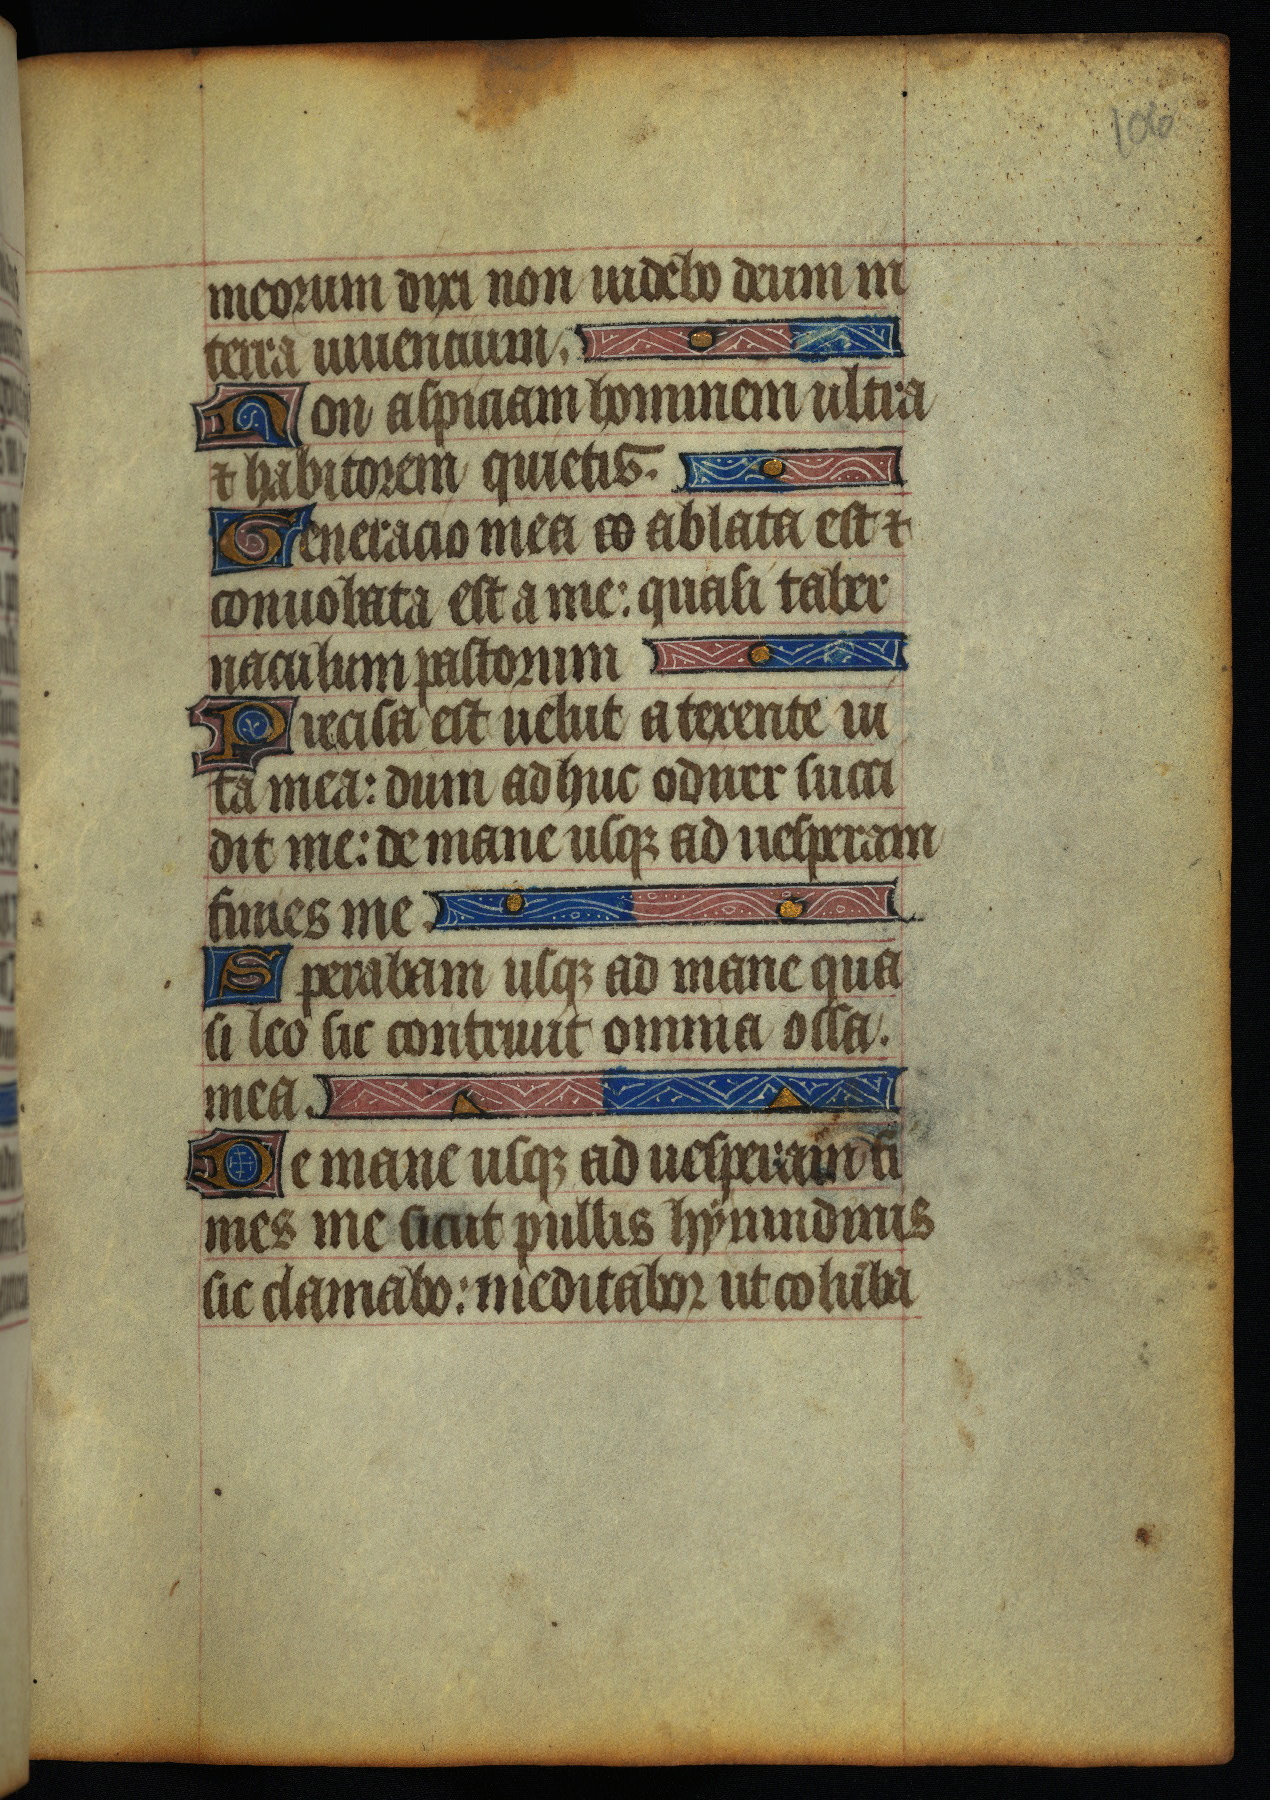 106
meorum dixi non uidebo deum in
terra uiuencium.
Non aspiciam hominem ultra
⁊ habitorem quietis.
Generacio mea co ablata est ⁊
conuolata est a me: quasi taber
naculum pastorum
Precisa est uelut a texente ui
ta mea: dum adhuc odirer succi
dit me: de mane usqꝫ ad uesperam
finies me.
Sperabam usqꝫ ad mane qua
si leo sic contriuit omnia ossa.
mea.
De mane usqꝫ ad uesperam fi
nies me sicut pullis hyrundinis
sic clamabo: meditabor ut columba